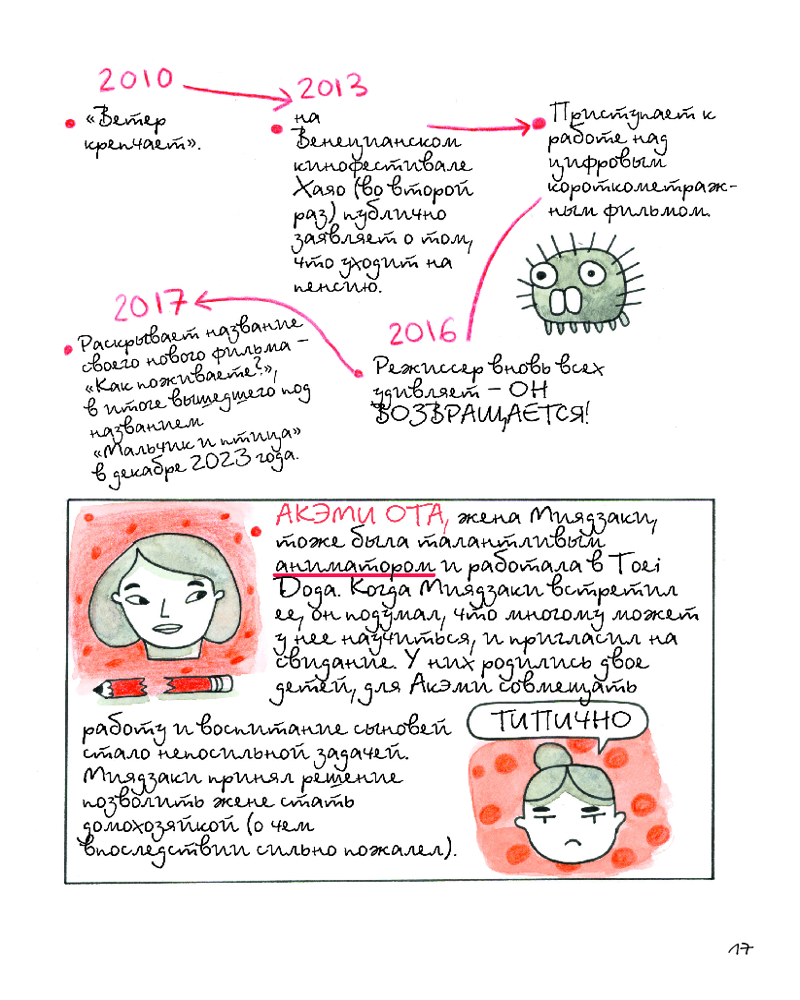 2010
«Ветер
крепчает».
2013
на
Венецианском
кинофестивале
Хаяо (во второй
раз) публично
заявляет о том,
что уходит на
пенсию.
Приступает к
работе над
цифровым
короткометраж-
ным фильмом.
2016
Режиссер вновь всех
удивляет – ОН
ВОЗВРАЩАЕТСЯ!
2017
Раскрывает название
своего нового фильма –
«Как поживаете?»,
в итоге вышедшего под
названием
«Мальчик и птица»
в декабре 2023 года.
АКЭМИ ОТА, жена Миядзаки,
тоже была талантливым
аниматором и работала в Toei
Doga. Когда Миядзаки встретил
ее, он подумал, что многому может
у нее научиться, и пригласил на
свидание. У них родились двое
детей, для Акэми совмещать
работу и воспитание сыновей
стало непосильной задачей.
Миядзаки принял решение
позволить жене стать
домохозяйкой (о чем
впоследствии сильно пожалел).
ТИПИЧНО
17